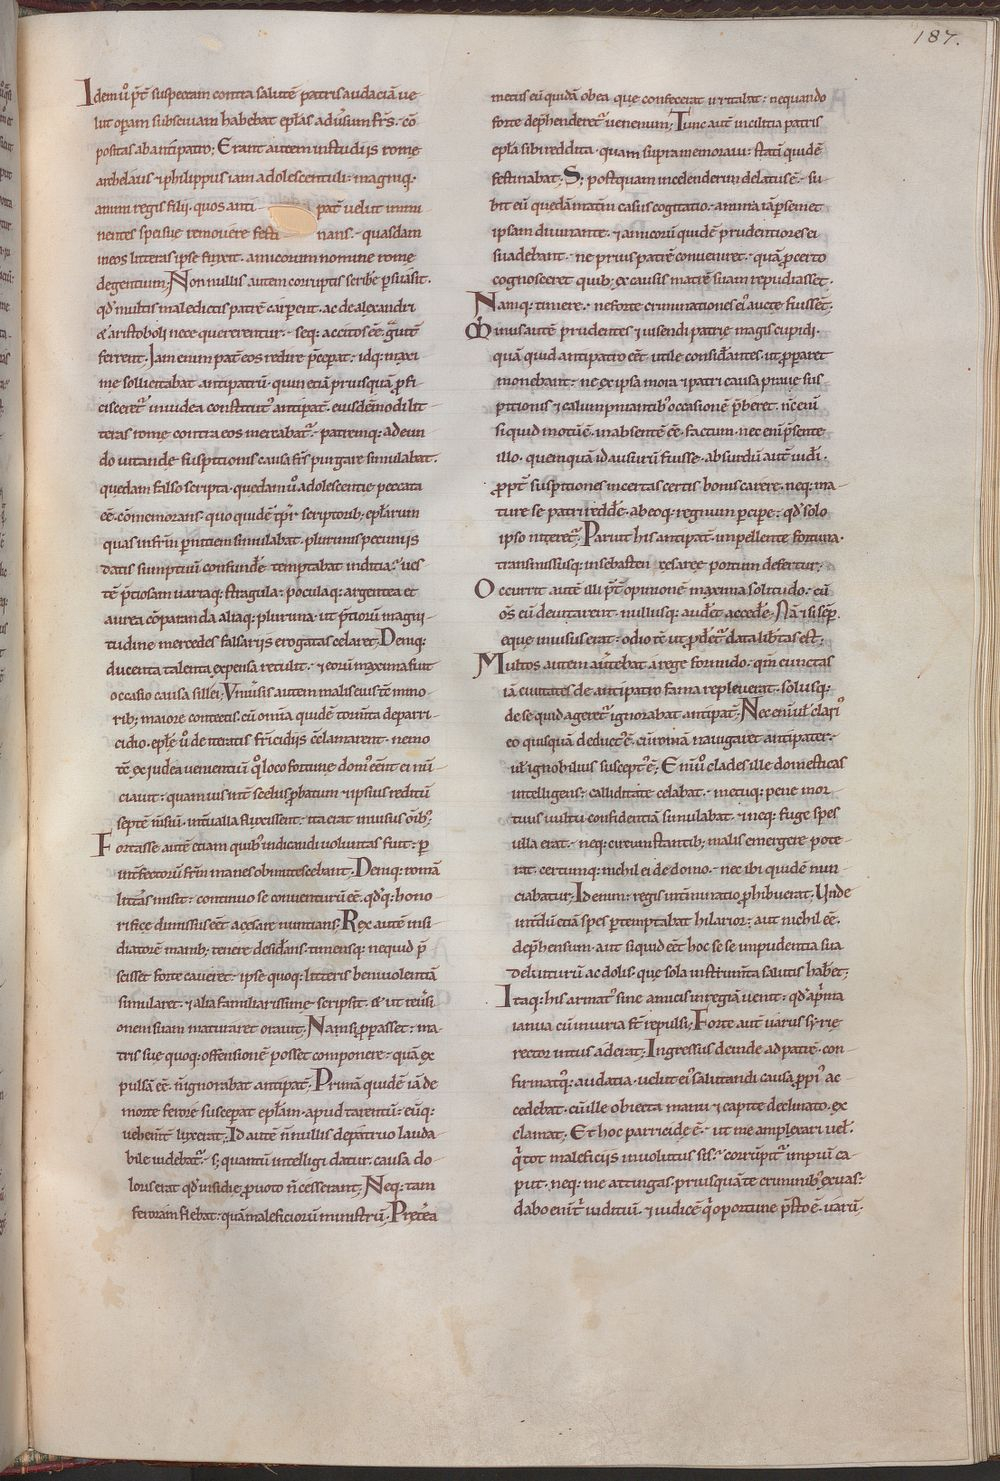 187.
Idem u͛o p̄t suspectam contra salutē patris audaciā ue
lut operam subseciuam habebat ep̄las aduersum fr̄s · cō
positas ab antipatro; Erant autem in studiis rome
archelaus ⁊ philippus iam adolescentuli · magniq·
animi regis filii · quos anti pat̄ velut immi
nentes spei sue remouere festi nans · quasdam
in eos litteras ipse finxit · amicorum nomine rome
degentium; Nonnullis autem corruptis scribe persuasit ·
qd̓ multis maledictis patrē carperent · ac de alexandri
⁊ aristoboli nece quererentur · seq; accitos eē graūt
ferrent · Iam enim pat̄ eos redire p̄ceperat · idq; maxi
me sollicitabat antipatrū · quin etiā priusquā profi
cisceret̉ in iudea constitut̉ antipat̄ · eiusdēmodi lit
teras rome contra eos mercabat̉ · patremq; adeun
do uitande suspitionis causa fr̄s purgare simulabat ·
quedam falso scripta · quedam u͛o adolescentie peccata
eē · cōmemorans · quo quidē tp̄r scriptorib; ep̄larum
quas in fr̄m p̄nitiem simulabat · plurimis pecuniis
datis sumptuū confundere temptabat inditia · ues
tē p̄tiosam uariaq; stragula · poculaq; argentea et
aurea cōparanda aliaq; plurima · ut p̄tiorū magni
tudine mercedes fallariis erogatas celaret; Deniq;
ducenta talenta expensa retulit · ⁊ eorū maxima fuit
occasio causa sillei; Vniuersis autem malis eius tē mino
rib; maiore contectis · cū omnia quidē torm̄ta de parri
cidio · ep̄le u͛o de iteratis fr̄icidiis cēlamarent · nemo
tē ex iudea uenientiū q̄ loco fortune dom̉ eēnt ei nū
ciauit · quamuis int̄ scelus probatum ⁊ ipsius reditū
septē m̄siū · int̄ualla fluxissent · ita erat inuisus ōib;
Fortasse autē etiam quib̉ indicandi uoluntas fuit · p̄
int̄fectorū fr̄m manes obmutescebant · Deniq; romā
litt̄as misit · continuo se conuenturū eē · qd̓q; hono
rifice dimissus eēt a cesare nuntians; Rex autē insi
diatorē manib; tenere desiderans · timensq; ne quid p̄
scisset forte caueret · ipse quoq; litteris beniuolentiā
simularet · ⁊ alia familiarissime scripsit · ⁊ ut reuersi
onem suam maturaret orauit; Nam si properasset · ma
tris sue quoq; offensionē posset componere · quā ex
pulsā eē · n̄ ignorabat antipat̄; Primā quidē iā de
morte ferore susceperat ep̄lam · apud tarentū · eūq;
uehem̄t luxerat; Id autē n̄nullis de patruo lauda
bile uidebat̉ · s; quantū intelligi datur · causa do
loris erat qd̓ insidie prouoto n̄ cesserant; Neq; tam
feroram flebat · quā maleficiorū ministrū · Preterea
metus eū quidā ob ea que confecerat irritabat · nequando
forte dep̄henderet̉ uenenum; Tunc autē in cilitia patris
ep̄la sibi reddita · quam supra memoraui · statī quidē
festinabat; S; postquam in celenderim delatus ē · su
bit eū quedā matr̄m casus cogitatio · anima iā p̄ semet
ipsam diuinante · ⁊ amicorū quidē prudentiores ei
suadebant · ne prius patrē conueniret · quā pro certo
cognosceret quib; ex causis matrē suam repudiasset ·
Namq; timere · ne forte criminationes ei̓ aucte fuissent ·
Minus autē prudentes ⁊ uisendi patrie magis cupidi ·
quā quid antipatro eēt utile considerantes · ut properaret
monebant · ne ex ipsa mora ⁊ patri causa praue sus
pitionis ⁊ calumpniantib̉ occasionē p̄beret · n̄c enī
si quid motū ē · in absentē eē factum · nec enī p̄sente
illo · quemquā id ausurū fuisse · absurdū aut̄ uideri ·
propt̄ suspitiones incertas certis bonis carere · neq; ma
ture se patri reddere · ab eoq; regnum percipe · qd̓ solo
ipso niteret̉; Paruit his antipat̄ · impellente fortuna ·
transmissisq; in sebasten cesaree portum defertur;
Occurrit autē illi p̄t̄ opinionē maxima solitudo · cū
ōs eū deuitarent · nullusq; audēt accedere · Nā ⁊ si semp̄
eque inuisus erat · odio tē ut proderet̉ data libertas est ·
Multos autem auertebat a rege formido · qm̄ cunctas
iā ciuitates de antipatro fama repleuerat · solusq;
de se quid ageret̉ ignorabat antipat̄; Nec enī ul̄ clari̓
eo quisquā deduct̉ ē · cū romā nauigaret antipater ·
ul̄ ignobilius suscept̉ ē; Enīu͛o clades ille domesticas
intelligens · calliditate celabat · metuq; pene mor
tuus uultu confidentiā simulabat · ⁊ neq; fuge spes
ulla erat · neq; circumstantib; malis emergere pote
rat · certumq; nichil ei de domo · nec ibi quidē nun
ciabatur; Id enim regis int̄minatio prohibuerat · Unde
int̄dū etiā spes pertemptabat hilarior · aut nichil eē
dep̄hensum · aut si quid eēt hoc se se impudentia sua
deluiturū ac dolis · que sola instrum̄ta salutis haberet;
Itaq; his armat̉ sine amicis in regiā uenit · qd̓ a p̄ma
ianua cū iniuria st̄ repulsi; Forte aut̄ uarus syrie
rector intus aderat; Ingressus deinde ad patrē · con
firmatq; audatia · uelut ei̓ salutandi causa propi̓ ac
cedebat · cū ille obiecta manu ⁊ capite declinato · ex
clamat; Et hoc parricide ē · ut me amplexari uel̄ ·
q̄ tot maleficiis inuolutus sit · corrūpit̉ impiū ca
put · neq; me attingas · priusquā te criminib̉ exuas ·
dabo enī t̄ iuditiū · ⁊ iudicē q̄ oportune p̄sto ē · uarū ·